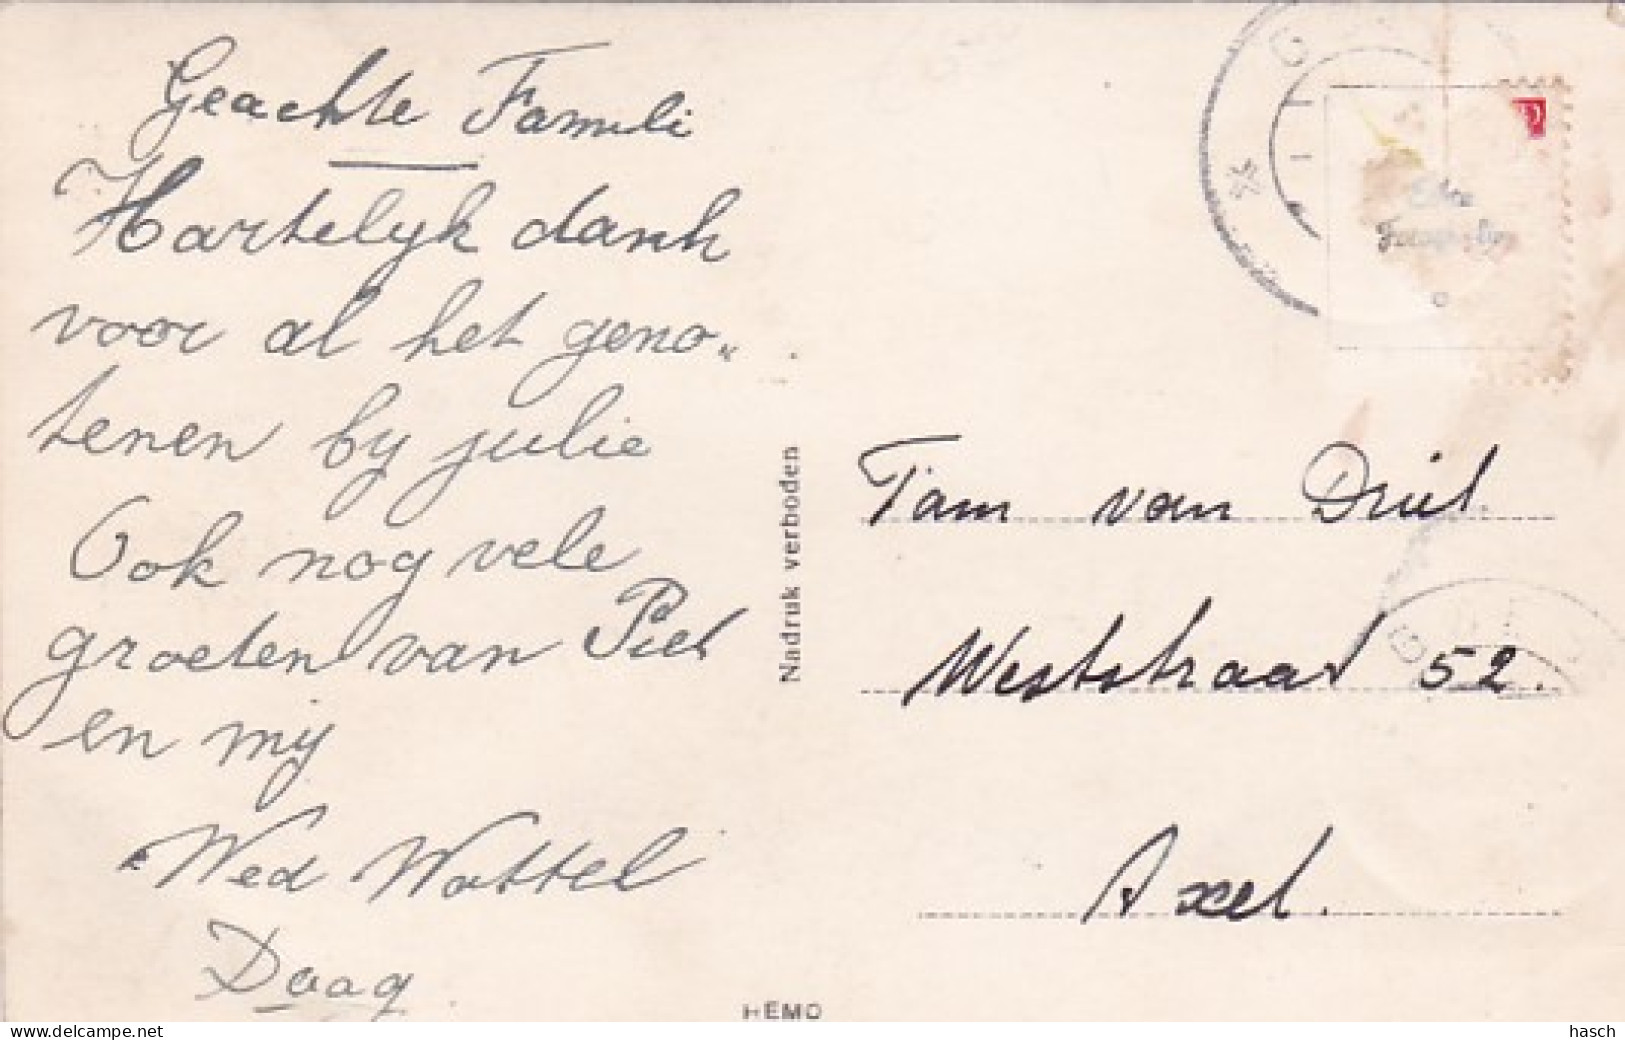 Geachte Famili
Hartelijk dank
voor al het geno„
tenen bij julie
Ook nog vele
groeten van Piet
en mij
Wed Wattel
Daag
Nadruk verboden
HEMO
Fam van Driel.
Weststraat 52.
Axel.
hasch
delcampe.net